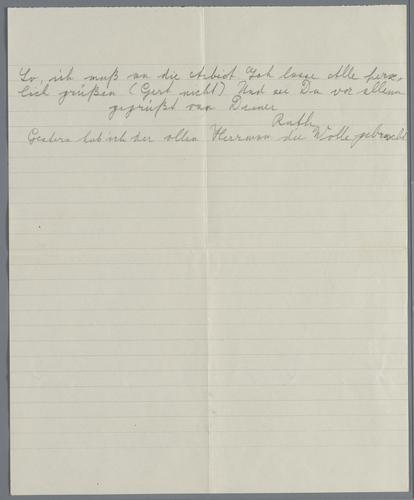 So, ich muß an die Arbeit. Ich lasse Alle herz-
lich grüßen (Gert nicht) Und sei Du vor allem
gegrüßt von Deiner
Ruth
Gestern hab ich der ollen Herrman die Wolle gebracht